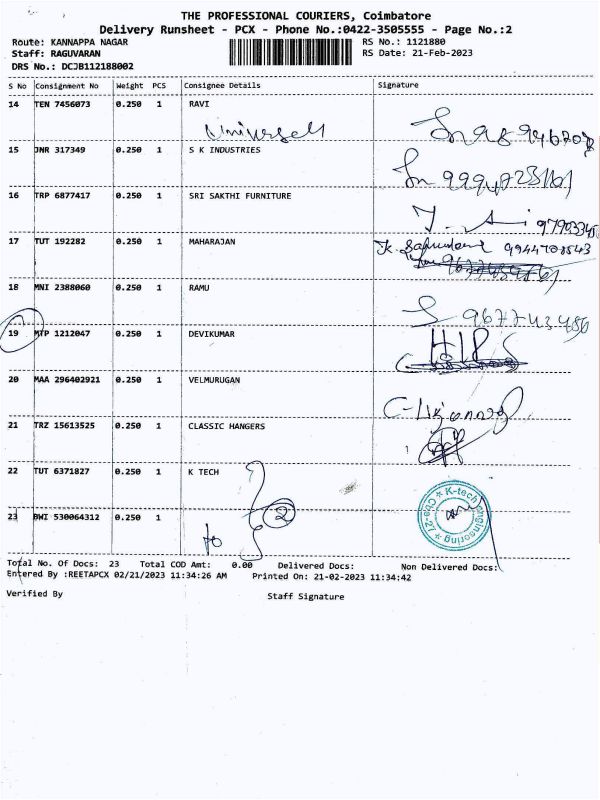 THE PROFESSIONAL COURIERS, Coimbatore
Delivery Runsheet - PCX - Phone No.:0422-3505555 - Page No.:2
Route: KANNAPPA NAGAR RS No.: 1121880
Staff: RAGUVARAN RS Date: 21-Feb-2023
DRS No.: DCJB112188002
S No Consignment No Weight PCS Consignee Details Signature
14 TEN 7456073 0.250 1 RAVI
Universal
15 JNR 317349 0.250 1 S K INDUSTRIES
16 TRP 6877417 0.250 1 SRI SAKTHI FURNITURE
17 TUT 192282 0.250 1 MAHARAJAN
18 MNI 2388060 0.250 1 RAMU
19 MTP 1212047 0.250 1 DEVIKUMAR
20 MAA 296402921 0.250 1 VELMURUGAN
21 TRZ 15613525 0.250 1 CLASSIC HANGERS
22 TUT 6371827 0.250 1 K TECH
2
K-tech engineering
23 BWI 530064312 0.250 1
to
Total No. Of Docs: 23 Total COD Amt: 0.00 Delivered Docs: Non Delivered Docs:
Entered By :REETAPCX 02/21/2023 11:34:26 AM Printed On: 21-02-2023 11:34:42
Verified By Staff Signature